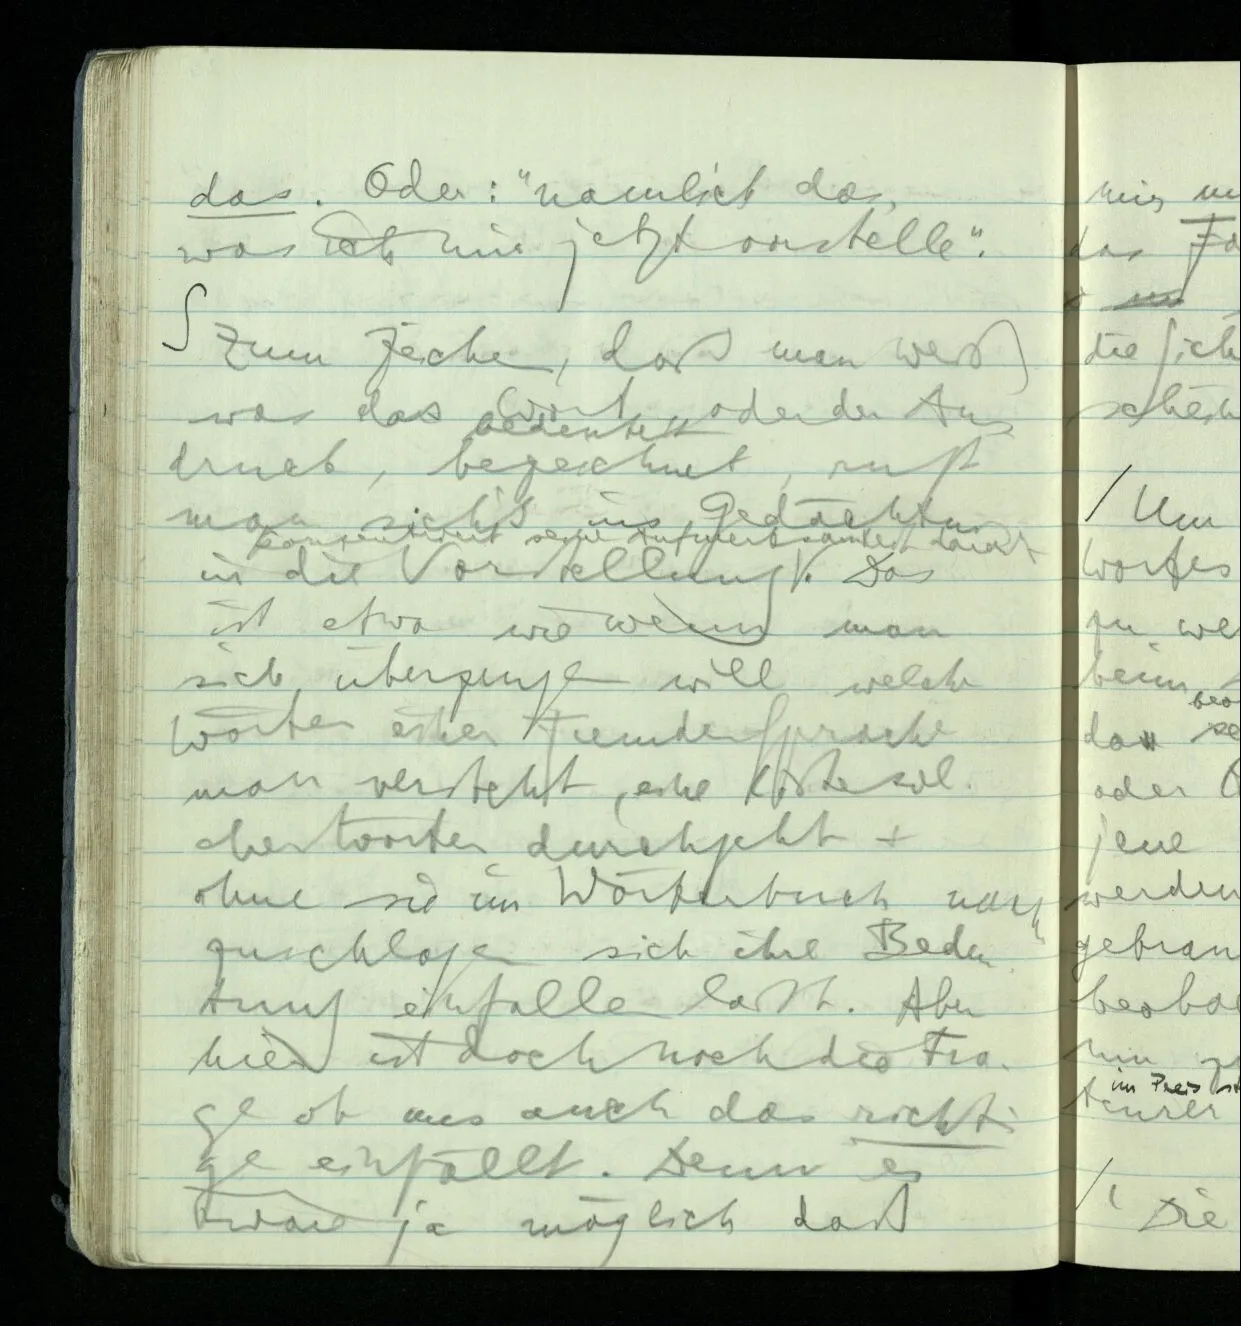 das. Oder: "nämlich das,
was ich mir jetzt vorstelle".
∫ Zum Zeichen, daß man weiß
was das Wort, oder der Aus
bedeutet
druck, bezeichnet, ruft
man sich's ins Gedächtnis
konzentriert seine Aufmerksamkeit
in die Vorstellung. Das
ist etwa wie wenn man
sich überzeugen will welche
Wörter einer fremden Sprache
man versteht, eine Liste sol-
cher Wörter durchgeht +
ohne sie im Wörterbuch nach
zuschlagen sich ihre Bedeu
tung einfallen läßt. Aber
hier ist doch noch die Fra-
ge ob uns auch das richti
ge einfällt. Denn es
wäre ja möglich daß
mir
das
die sich
/ Um
Wortes
zu
beim
das
oder
jene
werden
im Preis
teurer
/ Die